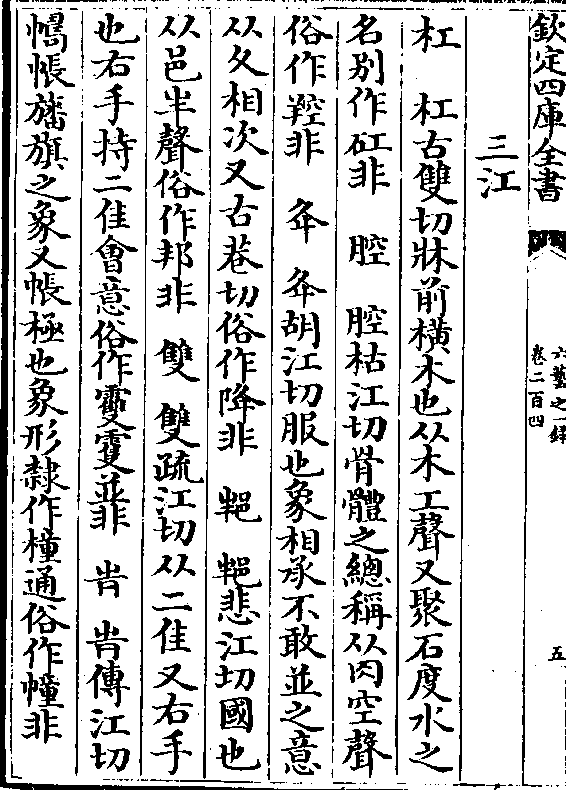 欽定四庫全書
六藝之一錄
卷二百四
五
三江
杠 杠古雙切牀前橫木也从木工聲又聚石度水之
名別作矼非 腔 腔枯江切骨體之總稱从肉空聲
俗作羫非 夅 夅胡江切服也象相承不敢並之意
从夂相次又古巷切俗作降非 𨛜 𨛜悲江切國也
从邑半聲俗作邦非 雙 雙疏江切从二隹又右手
也右手持二隹會意俗作䨇䨥並非 𠱠 𠱠傳江切
幬帳旛旗之象又帳極也象形隸作橦通俗作幢非